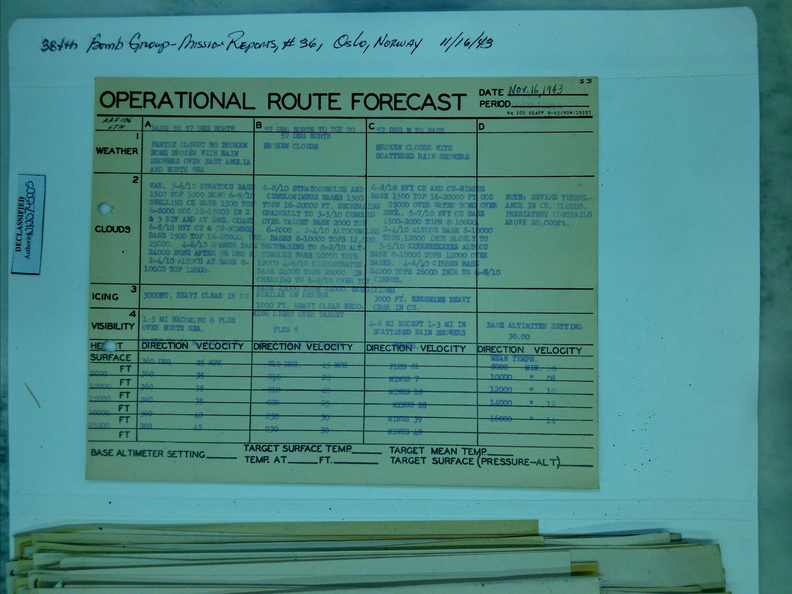 384th Bomb Group - Mission Reports, #36, Oslo, Norway 11/16/43
S 3
OPERATIONAL ROUTE FORECAST
DATE Nov. 16, 1943
PERIOD
DECLASSIFIED
A BASE TO 57 DEG NORTH
B 57 DEG NORTH TO TGT TO
57 DEG NORTH
C 57 DEG N TO BASE
D
1
WEATHER
PARTLY CLOUDY TO BROKEN
BCMG BROKEN WITH RAIN
SHOWERS OVER EAST ANGLIA
AND NORTH SEA
BROKEN CLOUDS
BROKEN CLOUDS WITH
SCATTERED RAIN SHOWERS
2
CLOUDS
VAR. 3-6/10 STRATOCU BASE
1500 TOP 3000 BCMG 6-9/10
SWELLING CU BASE 1500 TOP
6-8000 OCC 12-15000 IN 2
& 3 DIV AND AT ENGL COAST
6-8/10 HVY CU & CU-NIMBUS
BASE 1500 TOP 16-20000, OCC.
25000. 4-6/10 CIRRUS BASE
24000 BCMG AFTER 56 DEG N
2-4/10 ALTOCU AT BASE 8-
10000 TOP 12000.
6-8/10 STRATOCUMULUS AND
CUMULONIMBUS BASES 1500
TOPS 16-20000 FT. DECREASING
GRADUALLY TO 3-5/10 CUMULUS
OVER TARGET BASE 2000 TOP
6-8000. 2-4/10 ALTOCUMULUS
BASES 8-10000 TOPS 12,000
DECREASING TO 0-2/10 ALT-
OCUMULUS BASE 10000 TOPS
12000 4-6/10 CIRROSTRATUS
BASE 24000 TOPS 26000 IN-
CREASING TO 6-8/10 OVER TGT
6-8/10 HVY CU AND CU-NIMBUS
BASE 1500 TOP 16-20000 FT OCC
25000 OVER WATER BCMG OVER
ENGL. 5-7/10 HVY CU BASE
1500-2000 TOPS 8-10000.
2-4/10 ALTOCU BASE 8-10000
TOPS 12000 INCR SLOWLY TO
3-5/10 ALTOCU
BASE 8-10000 TOPS 12000 OVER
BASES. 4-6/10 CIRRUS BASE
24000 TOPS 26000 INCR TO 6-8/10
CIRRUS.
NOTE: SEVERE TURBUL-
ANCE IN CU. CLOUDS.
PERSISTENT CONTRAILS
ABOVE 20,000ft.
3
ICING
3000FT. HEAVY CLEAR IN CU.
SIMILAR ON RETURN.
1000 FT. HEAVY CLEAR BECO-
MING LIGHT OVER TARGET
3000 FT. HEAVY
CLEAR IN CU.
4
VISIBILITY
1-3 MI BECOMING 6 PLUS
OVER NORTH SEA.
PLUS 6
4-6 MI EXCEPT 1-3 MI IN
SCATTERED RAIN SHOWERS
BASE ALTIMETER SETTING
30.00
HEIGHT DIRECTION VELOCITY DIRECTION VELOCITY DIRECTION VELOCITY DIRECTION VELOCITY
MEAN TEMPS.
SURFACE 360 DEG 25 MPH 010 DEG. 15 MPH PLUS 01
5000 FT 360 35 MINUS 7
10000 FT 360 35 MINUS 18
15000 FT 360 35 020 25 MINUS 28
20000 FT 360 40 030 30 MINUS 39
25000 FT 360 45 030 30 MINUS 48
BASE ALTIMETER SETTING
TARGET SURFACE TEMP
TEMP. AT FT.
TARGET MEAN TEMP
TARGET SURFACE (PRESSURE-ALT)